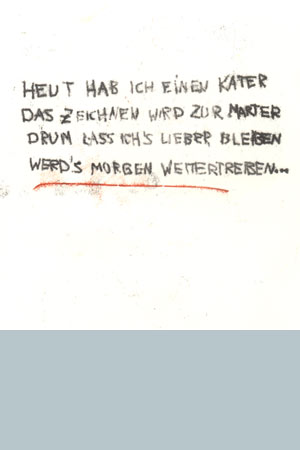 HEUT HAB ICH EINEN KATER
DAS ZEICHNEN WIRD ZUR MARTER
DRUM LASS ICH'S LIEBER BLEIBEN
WERD'S MORGEN WEITERTREIBEN...